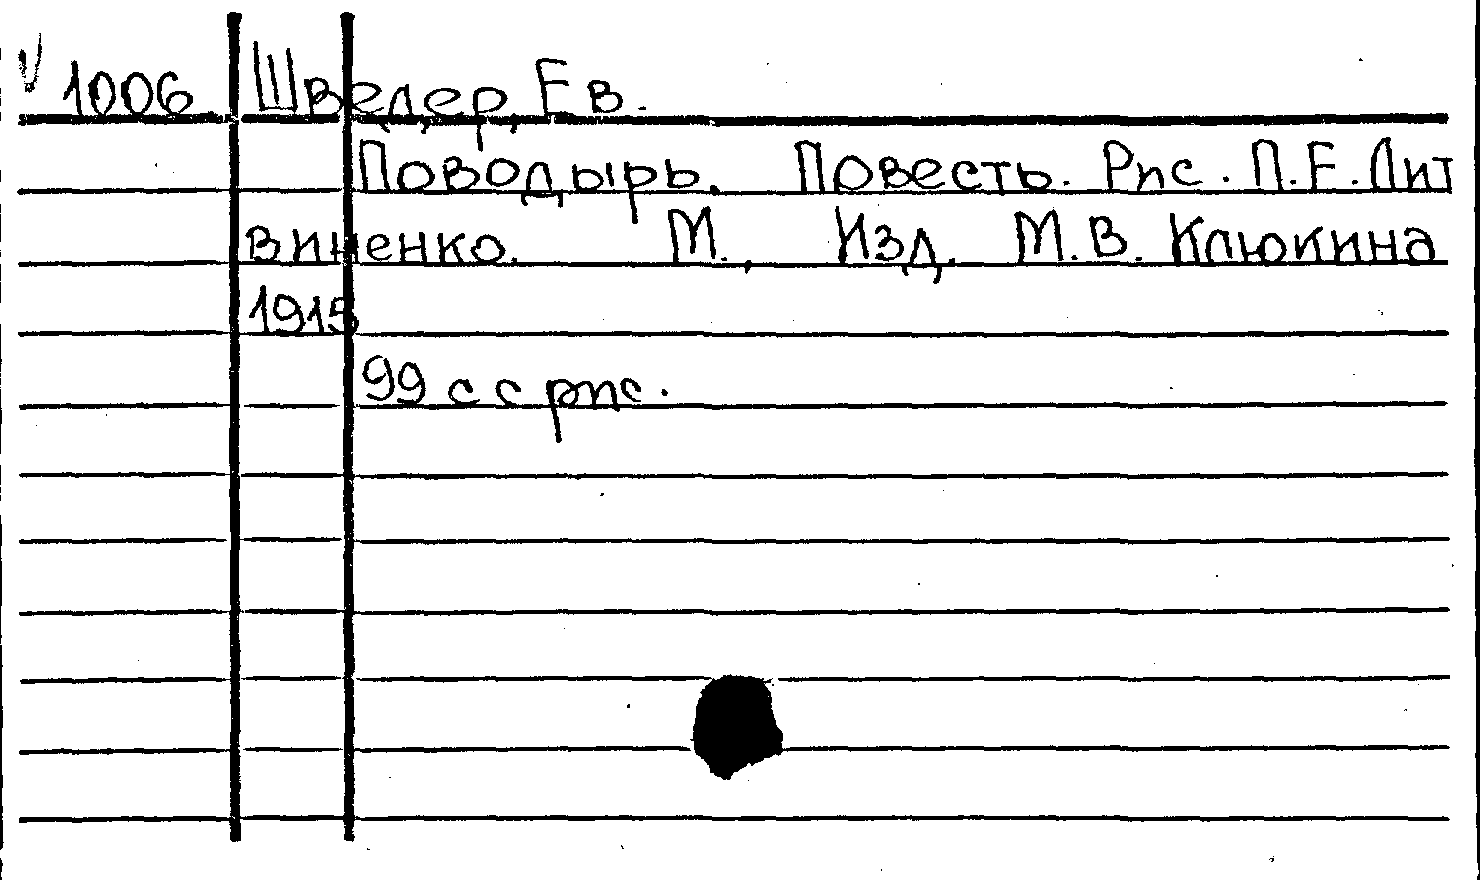 1006 Шведер, Ев.
Поводырь. Повесть. Рис. П.Е.Лит
виненко. М., Изд. М.В. Клюкина
1915
99 с с рис.